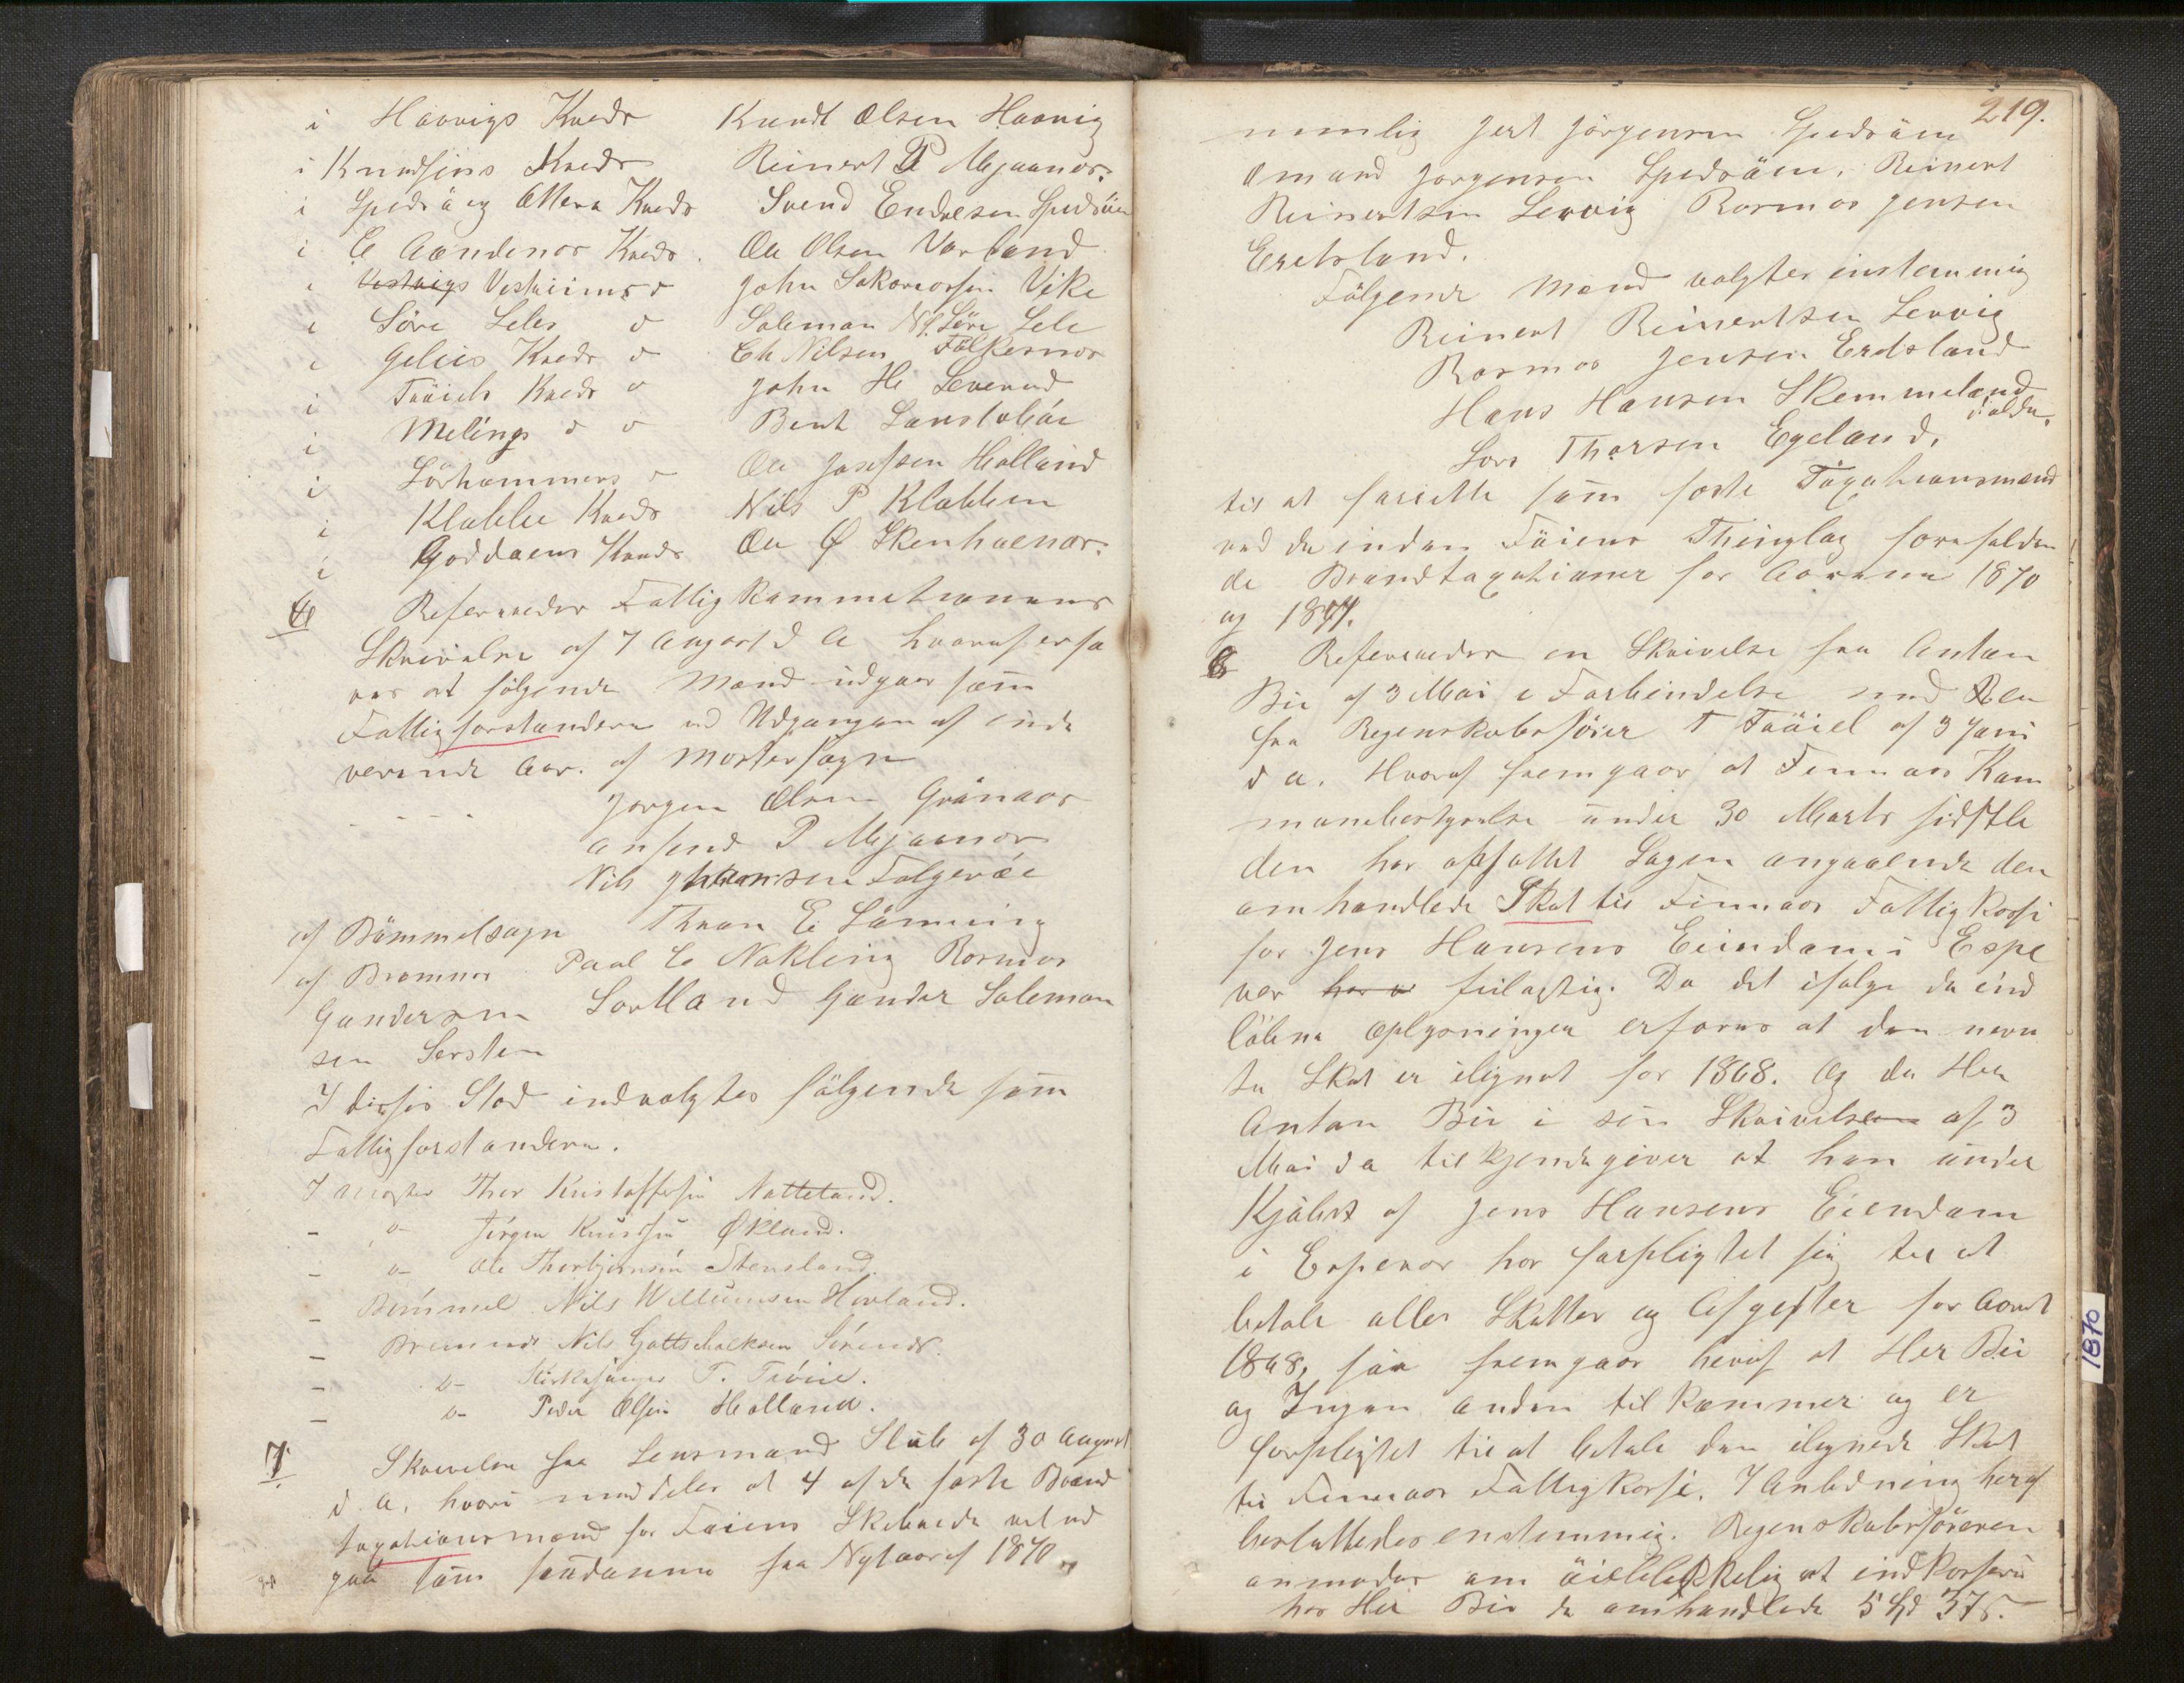 i Haavigs Kreds Knudt Olsen Haavig
i Knudseins Kreds Reinert P Mjaanes.
i Spidsö og Attera Kreds Svend Endresen Spidsöen
i E Aandenes Kreds. Ole Olsen Vorland
i Vestvigs Vestviims d John Sakariassen Vike
i Söre Leles d Soleman N. Söre Lele
i Gelies Kreds d Ch Nilsen Folkesnes
i Tröiels Kreds d John H. Leverud
i Melings d d Bent Langlobäe
i Lörhammers d Ole Josefsen Holland
i Klabbe Kreds Nils P Klabben
i Goddaens Kreds Ole Ø Skenhaenes.
6 Refereredes Fattigkommetionens
Skrivelse af 7 August d A hvoraf erfa
res at følgende Mænd udgaar som
Fattigforstandere ved Udgangen af inde
verende Aar. af Mostersogn
Jørgen Olsen Grönaas
Ansend P Mjaanes
Nils Johannesen Folgeröe
af Bömmelsogn Thran E Sönning
af Bremnes Paal E Nekling Rasmus
Gundersen Sortland Gunder Soleman
sen Sersten
I disses Sted indvalgtes fölgende som
Fattigforstandere.
I Moster Thor Kristoffersen Notteland.
- o- Jörgen Knudsen Økland.
- o- Ole Thorbjørnsen Stensland.
- Bömmel Nils Willumsen Hovland.
- Bremnes Nils Gottschalksen Sörenes.
- o- Kirkesanger T. Tröiel.
- o- Peder Olsen Holland.
7. Skrivelse fra Lensmand Stub af 30 August
d. A. hvori meddeles at 4 af de faste Brand
taxationsmænd for Föiens Skibrede vel ud
gaa som saadanne fra Nytaar af 1870
219.
nemlig Jert Jörgensen Spidsöen
Omund Jørgensen Spidsöen, Reinert
Reinertsen Lervig Rasmus Jensen
Eretsland.
Fölgende Mænd valgtes enstemmig
Reinert Reinertsen Lervig
Rasmus Jensen Eretsland
Hans Hansen Skemmeland
Lars Thorsen Egeland.
til at forrette som faste Taxationsmænd
ved de inden Föiens Thinglag forefalden
de Brandtaxationer for Aarene 1870
og 1871.
8 Refereredes en Skrivelse fra Anton
Bie af 3 Mai i Forbindelse med Een
fra Regenskabsförer T Tröiel af 3 Juni
d a. Hvoraf fremgaar at Finnaas Kom
munebestyrelse under 30 Marts sidstle
den har opfattet Sagen angaaende den
omhandlede Skat til Finnaas Fattigkasse
for Jens Hansens Eiendom i Espe
ver har v feilagtig. Da det ifølge de ind
löbne Oplysninger erfares at den nevn
te Skat er ilignet for 1868. Og da Her
Anton Bie i sin Skrivelse af 3
Mai d a tilkjendegiver at han under
Kjöbet af Jens Hansens Eiendom
i Espever har forpligtet sig til at
betale alle Skatter og Afgifter for Aaret
1868, saa fremgaar heraf at Her Bie
og Ingen anden tilkommer og er
forpligtet til at betale den ilignede Skat
til Finnaas Fattigkasse. I Anledning heraf
besluttedes enstemmig. Regenskabsföreren
anmodes om öieblikkelig at indkassere
hos Her Bie de omhandlede 5 Spd 37 s.
1870